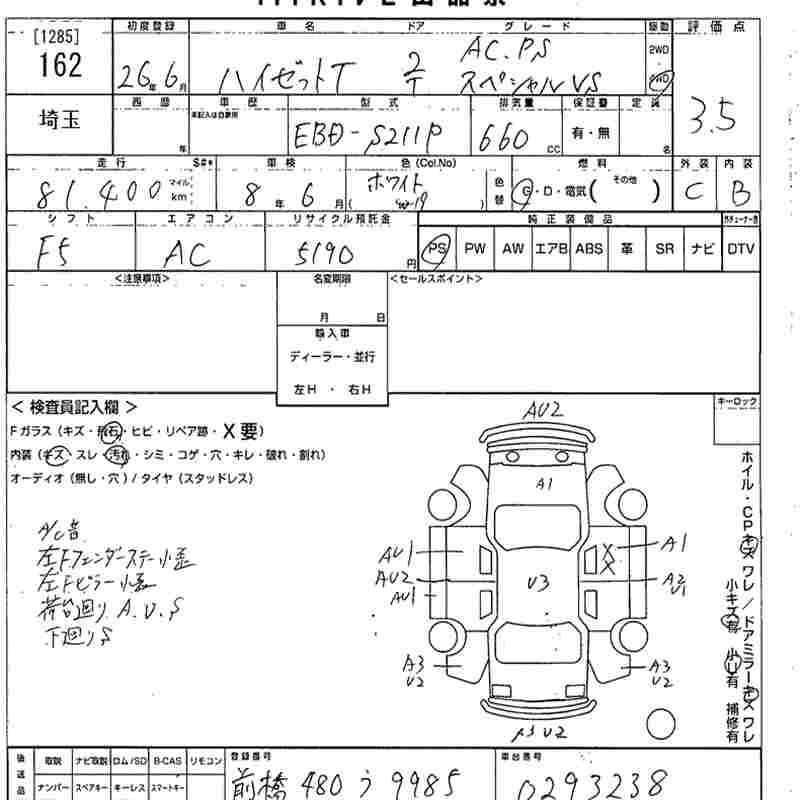 [1285]
162
埼玉
初度登録 車名 ドア グレード 駆動 評価点
26年6月 ハイゼットT 2/T AC.PS スペシャルVS 2WD 4WD 3.5
西暦 車歴 型式 排気量 保証書 定員
年 未記入は自家用 EBD-S211P 660cc 有・無 名
走行 S#* 車検 色(Col.No) 燃料 外装 内装
81,400 マイル km 8年6月 ホワイト ( ) 色替 G・D・電気( その他 ) C B
シフト エアコン リサイクル預託金 純正装備品
F5 AC 5190円 PS PW AW エアB ABS 革 SR ナビ DTV
<注意事項> 名変期限 <セールスポイント>
月 日
輸入車
ディーラー・並行
左H ・ 右H
<検査員記入欄> キーロック
Fガラス (キズ・飛石・ヒビ・リペア跡・X要)
内装 (キズ・スレ・汚れ・シミ・コゲ・穴・キレ・破れ・割れ)
オーディオ (無し・穴) / タイヤ (スタッドレス)
A/C音
左Fフェンダーステー小歪
左Fピラー小歪
荷台廻りA.U.S
下廻りS
AU2
A1
AU1
AU2
AU1
U3
X
X
A1
A2
U1
A3
U2
A3
U2
A3U2
ホイル・CPキズワレ/ドアミラーキズワレ
小キズ有 小U有 補修有
後送品 取説 ナビ取説 ロム/SD B-CAS リモコン 登録番号 車台番号
ナンバー スペアキー キーレス スマートキー 前橋 480 う 9985 0293238